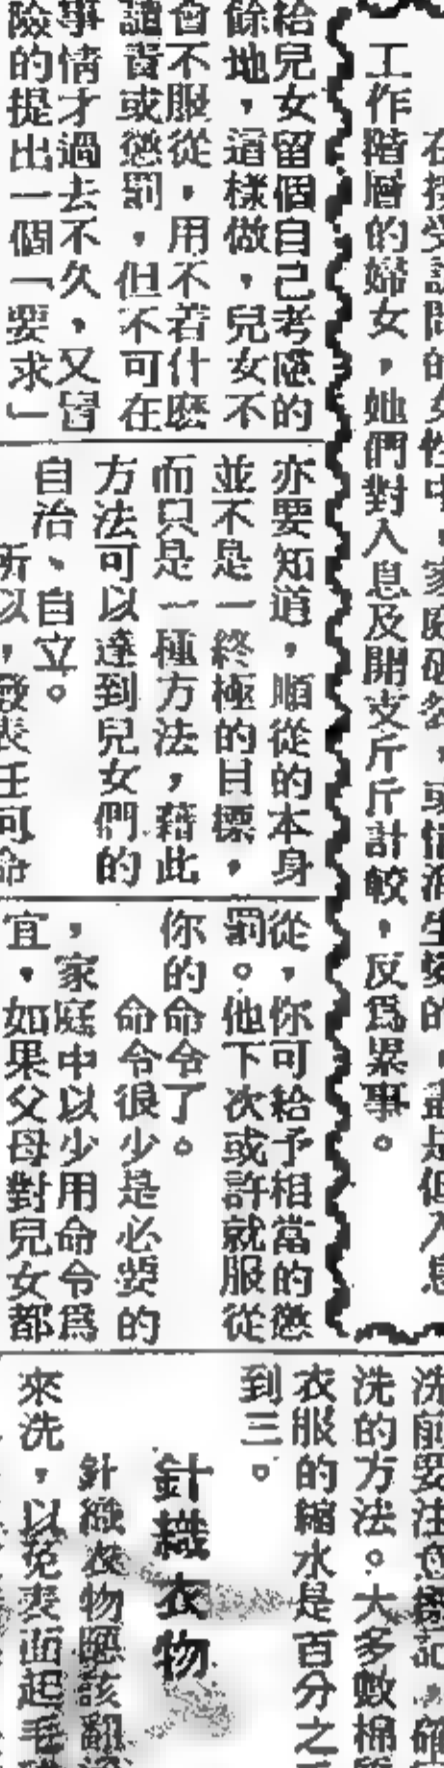 工作階層的婦女，她們對入息及開支斤斤計較，反爲累事。
給兒女留個自己考慮的
餘地，這樣做，兒女不
會不服從，用不着什麽
譴責或懲罰，但不可在
事情才過去不久，又冒
險的提出一個「要求」
亦要知道，順從的本身
並不是一終極的目標，
而只是一種方法，藉此
方法可以達到兒女們的
自治、自立。
所以，發表任何命
從，你可給予相當的懲
罰。他下次或許就服從
你的命令了。
命令很少是必要的
，家庭中以少用命令爲
宜，如果父母對兒女都
洗的方法。大多數棉
衣服的縮水是百分之
到三。
針織衣物
針織衣物應該翻
來洗，以免表面起毛